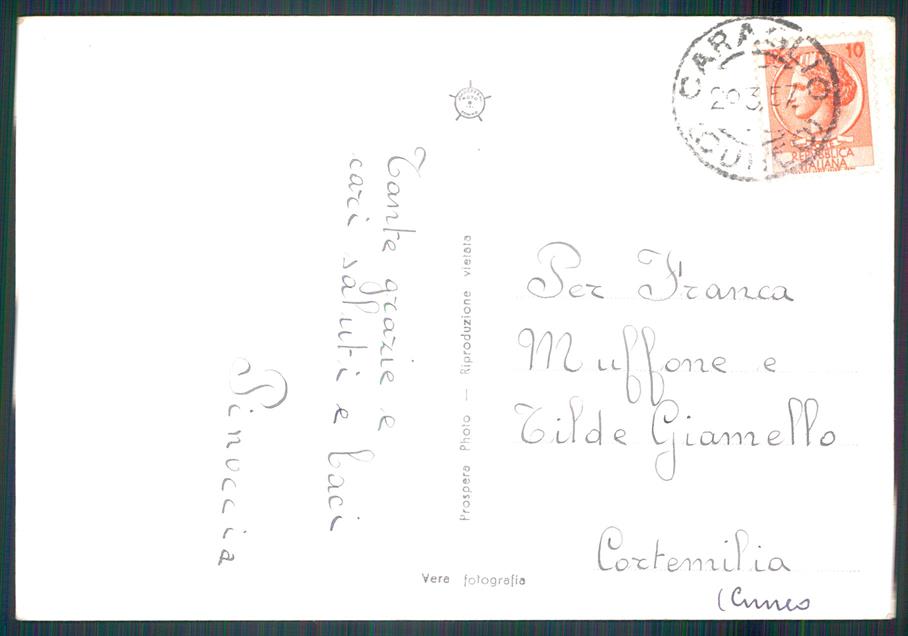 Tante grazie e
cari saluti e baci
Pinuccia
Prospera Photo — Riproduzione vietata
Vera fotografia
CARAGLIO
29.3.57
(CUNEO)
10
POSTE
REPUBBLICA
ITALIANA
Per Franca
Muffone e
Tilde Giamello
Cortemilia
(Cuneo